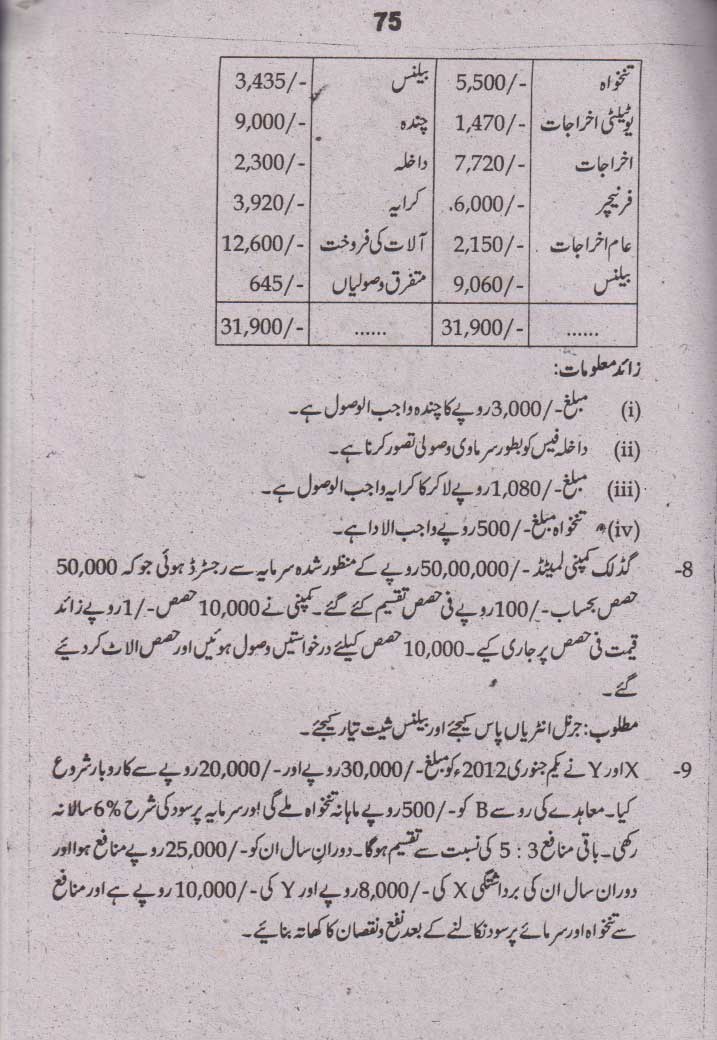 75
تنخواہ 5,500/- بیلنس 3,435/-
یوٹیلٹی اخراجات 1,470/- چندہ 9,000/-
اخراجات 7,720/- داخلہ 2,300/-
فرنیچر 6,000/-. کرایہ 3,920/-
عام اخراجات 2,150/- آلات کی فروخت 12,600/-
بیلنس 9,060/- متفرق وصولیاں 645/-
...... 31,900/- ...... 31,900/-
زائد معلومات:
(i) مبلغ -/3,000 روپے کا چندہ واجب الوصول ہے۔
(ii) داخلہ فیس کو بطور سرماوی وصولی تصور کرنا ہے۔
(iii) مبلغ -/1,080 روپے لاکر کا کرایہ واجب الوصول ہے۔
(iv) تنخواہ مبلغ -/500 روپے واجب الادا ہے۔
8- گڈ لک کمپنی لمیٹڈ -/50,00,000 روپے کے منظور شدہ سرمایہ سے رجسٹرڈ ہوئی جو کہ 50,000
حصص بحساب -/100 روپے فی حصص تقسیم کئے گئے۔ کمپنی نے 10,000 حصص -/1 روپے زائد
قیمت فی حصص پر جاری کیے۔ 10,000 حصص کیلئے درخواستیں وصول ہوئیں اور حصص الاٹ کر دیئے
گئے۔
مطلوب: جرنل انٹریاں پاس کیجئے اور بیلنس شیٹ تیار کیجئے۔
9- X اور Y نے یکم جنوری 2012ء کو مبلغ -/30,000 روپے اور -/20,000 روپے سے کاروبار شروع
کیا۔ معاہدے کی رو سے B کو -/500 روپے ماہانہ تنخواہ ملے گی اور سرمایہ پر سود کی شرح 6% سالانہ
رکھی۔ باقی منافع 3 : 5 کی نسبت سے تقسیم ہوگا۔ دوران سال ان کو -/25,000 روپے منافع ہوا اور
دوران سال ان کی برداشتگی X کی -/8,000 روپے اور Y کی -/10,000 روپے ہے اور منافع
سے تنخواہ اور سرمائے پر سود نکالنے کے بعد نفع و نقصان کا کھاتہ بنائیے۔